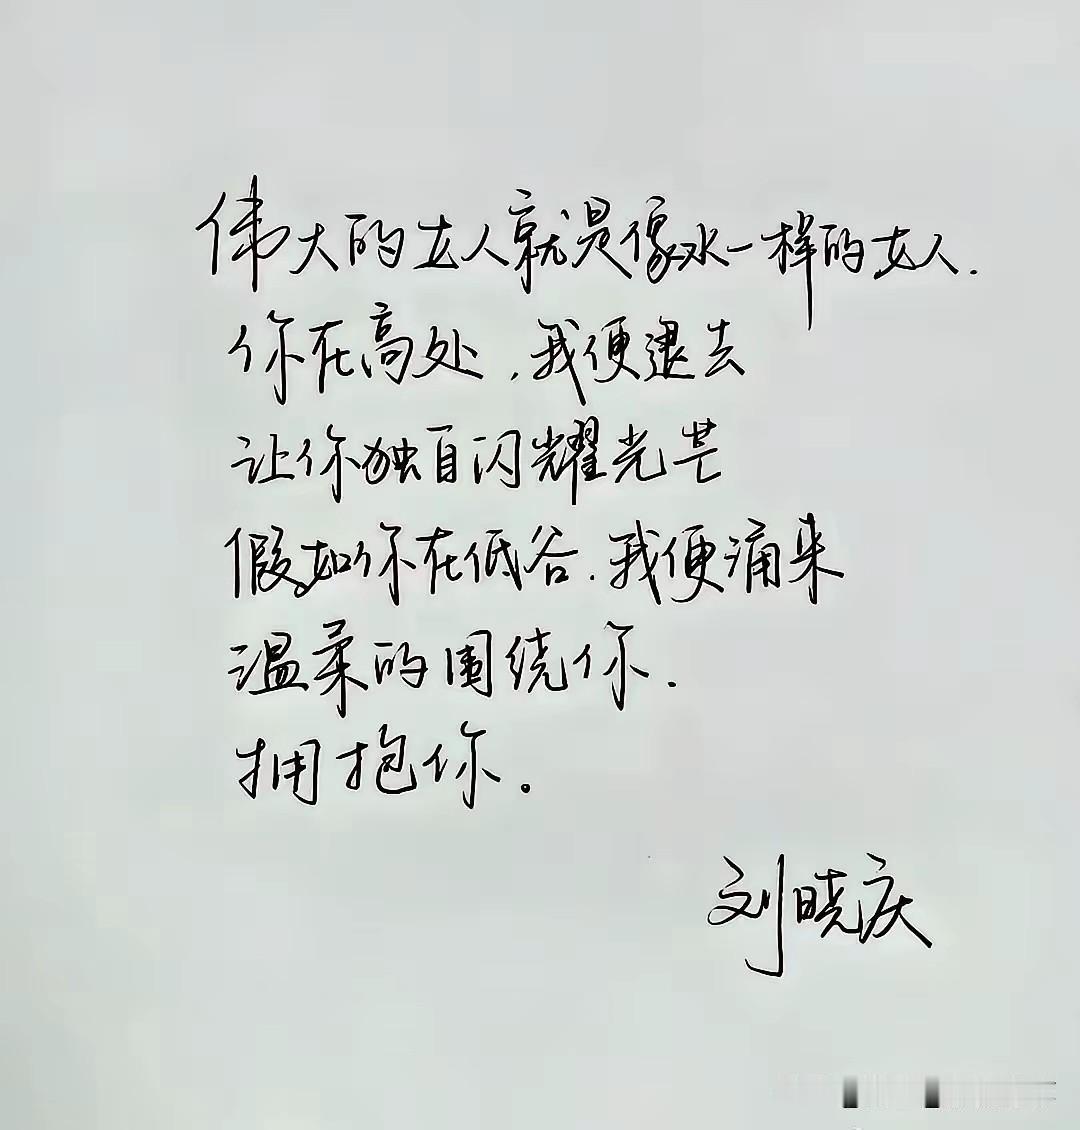 伟大的女人就是像水一样的女人.
你在高处,我便退去
让你独自闪耀光芒
假如你在低谷.我便涌来
温柔的围绕你.
拥抱你。
刘晓庆